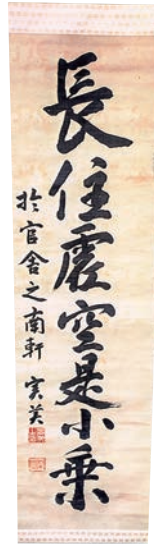 長住虚空是小乗
於官舎之南軒 実美